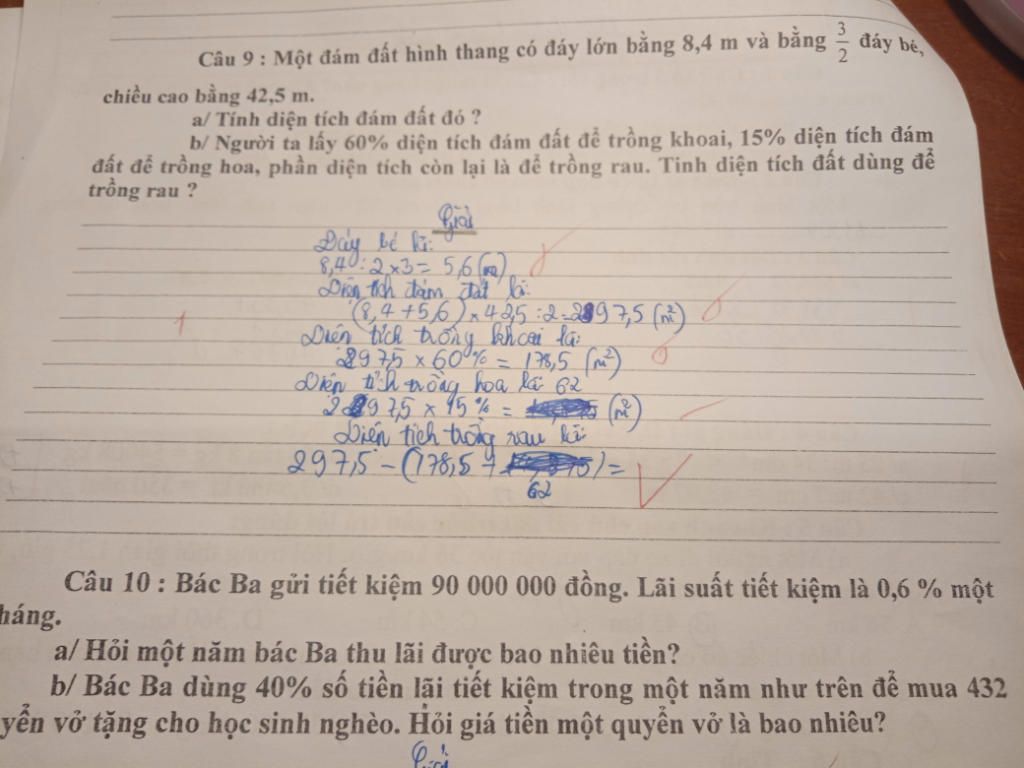 Câu 9 : Một đám đất hình thang có đáy lớn bằng 8,4 m và bằng 3/2 đáy bé,
chiều cao bằng 42,5 m.
a/ Tính diện tích đám đất đó ?
b/ Người ta lấy 60% diện tích đám đất để trồng khoai, 15% diện tích đám
đất để trồng hoa, phần diện tích còn lại là để trồng rau. Tinh diện tích đất dùng để
trồng rau ?
Giải
Đáy bé là:
8,4 : 2 x 3 = 5,6 (m)
Diện tích đám đất là:
(8,4 + 5,6) x 42,5 : 2 = 297,5 (m²)
Diện tích trồng khoai là:
297,5 x 60% = 178,5 (m²)
Diện tích trồng hoa là: 62
297,5 x 15% = (m²)
Diện tích trồng rau là:
297,5 - (178,5 + ) =
62
Câu 10 : Bác Ba gửi tiết kiệm 90 000 000 đồng. Lãi suất tiết kiệm là 0,6 % một
háng.
a/ Hỏi một năm bác Ba thu lãi được bao nhiêu tiền?
b/ Bác Ba dùng 40% số tiền lãi tiết kiệm trong một năm như trên để mua 432
yển vở tặng cho học sinh nghèo. Hỏi giá tiền một quyển vở là bao nhiêu?
Giải